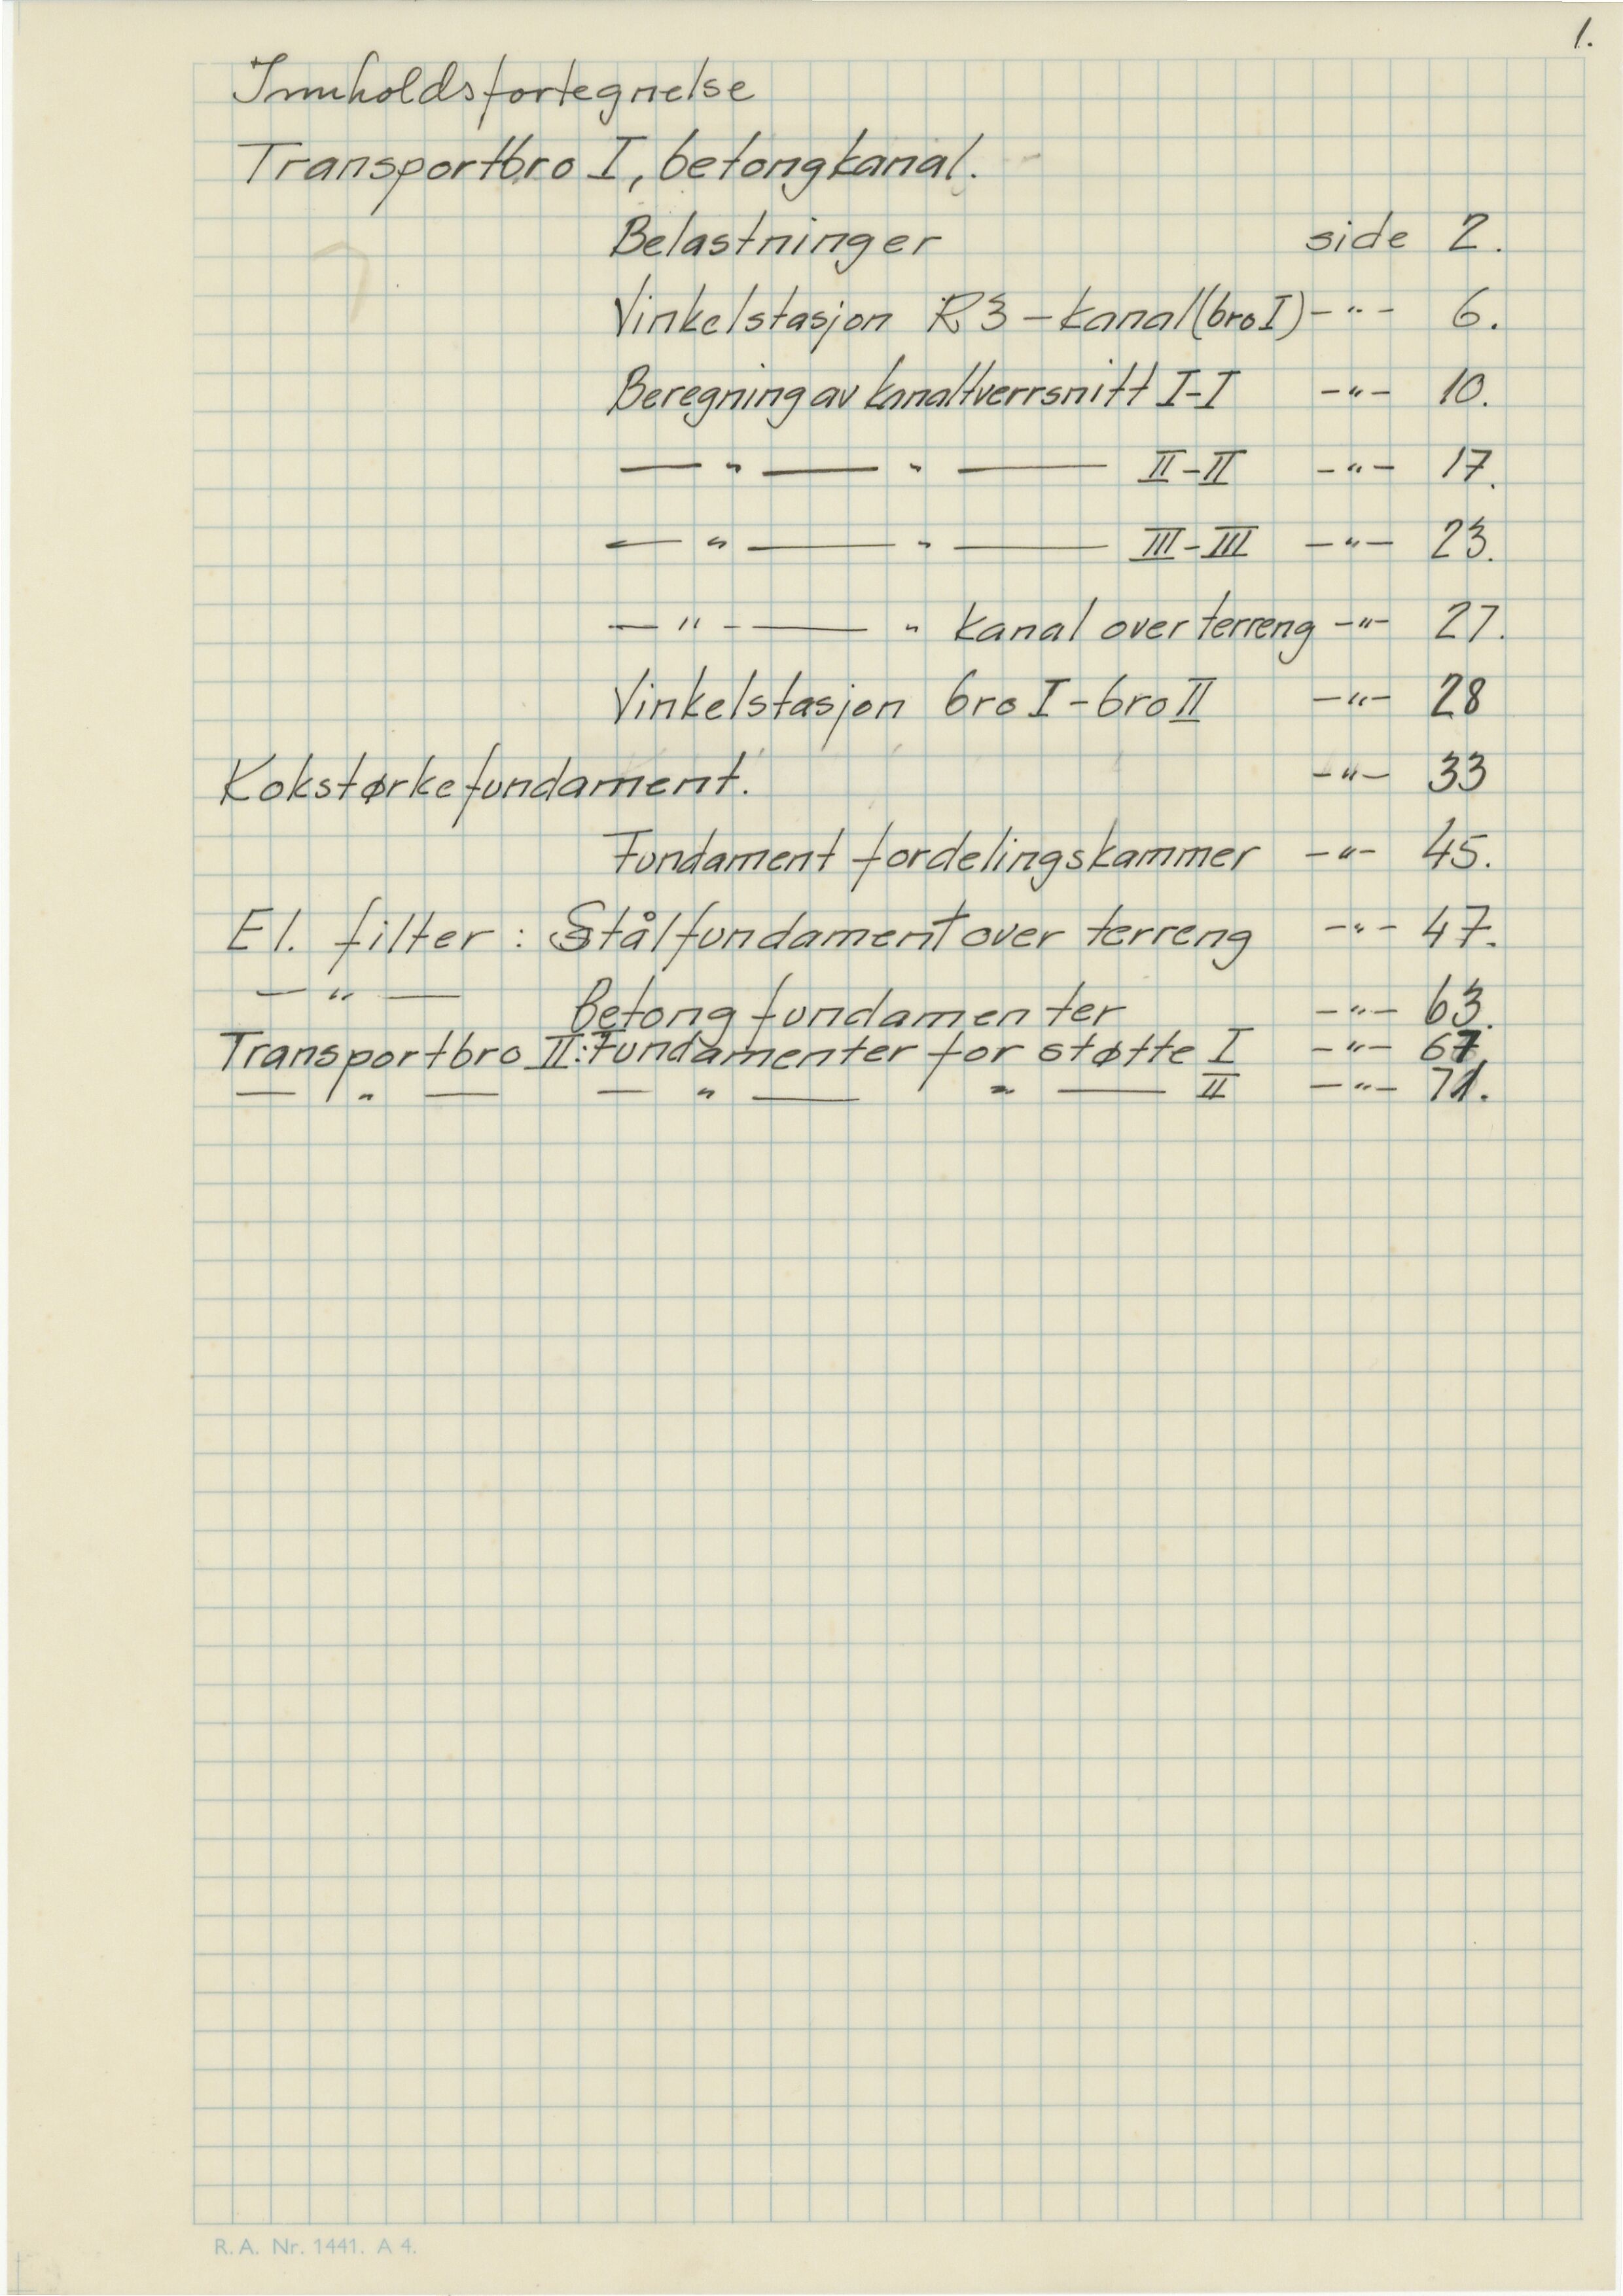 1.
Innholdsfortegnelse
Transportbro I, betongkanal.
Belastninger side 2.
Vinkelstasjon R3 - kanal (bro I) -"- 6.
Beregning av kanaltverrsnitt I-I -"- 10.
— " — " — II-II -"- 17.
— " — " — III-III -"- 23.
— " — " kanal over terreng -"- 27.
Vinkelstasjon bro I - bro II -"- 28
Kokstørkefundament. -"- 33
Fundament fordelingskammer -"- 45.
El. filter : Stålfundament over terreng -"- 47.
— " — Betongfundamenter -"- 63.
Transportbro II: Fundamenter for støtte I -"- 67.
— " — — " — " — II -"- 71.
R.A. Nr. 1441. A 4.